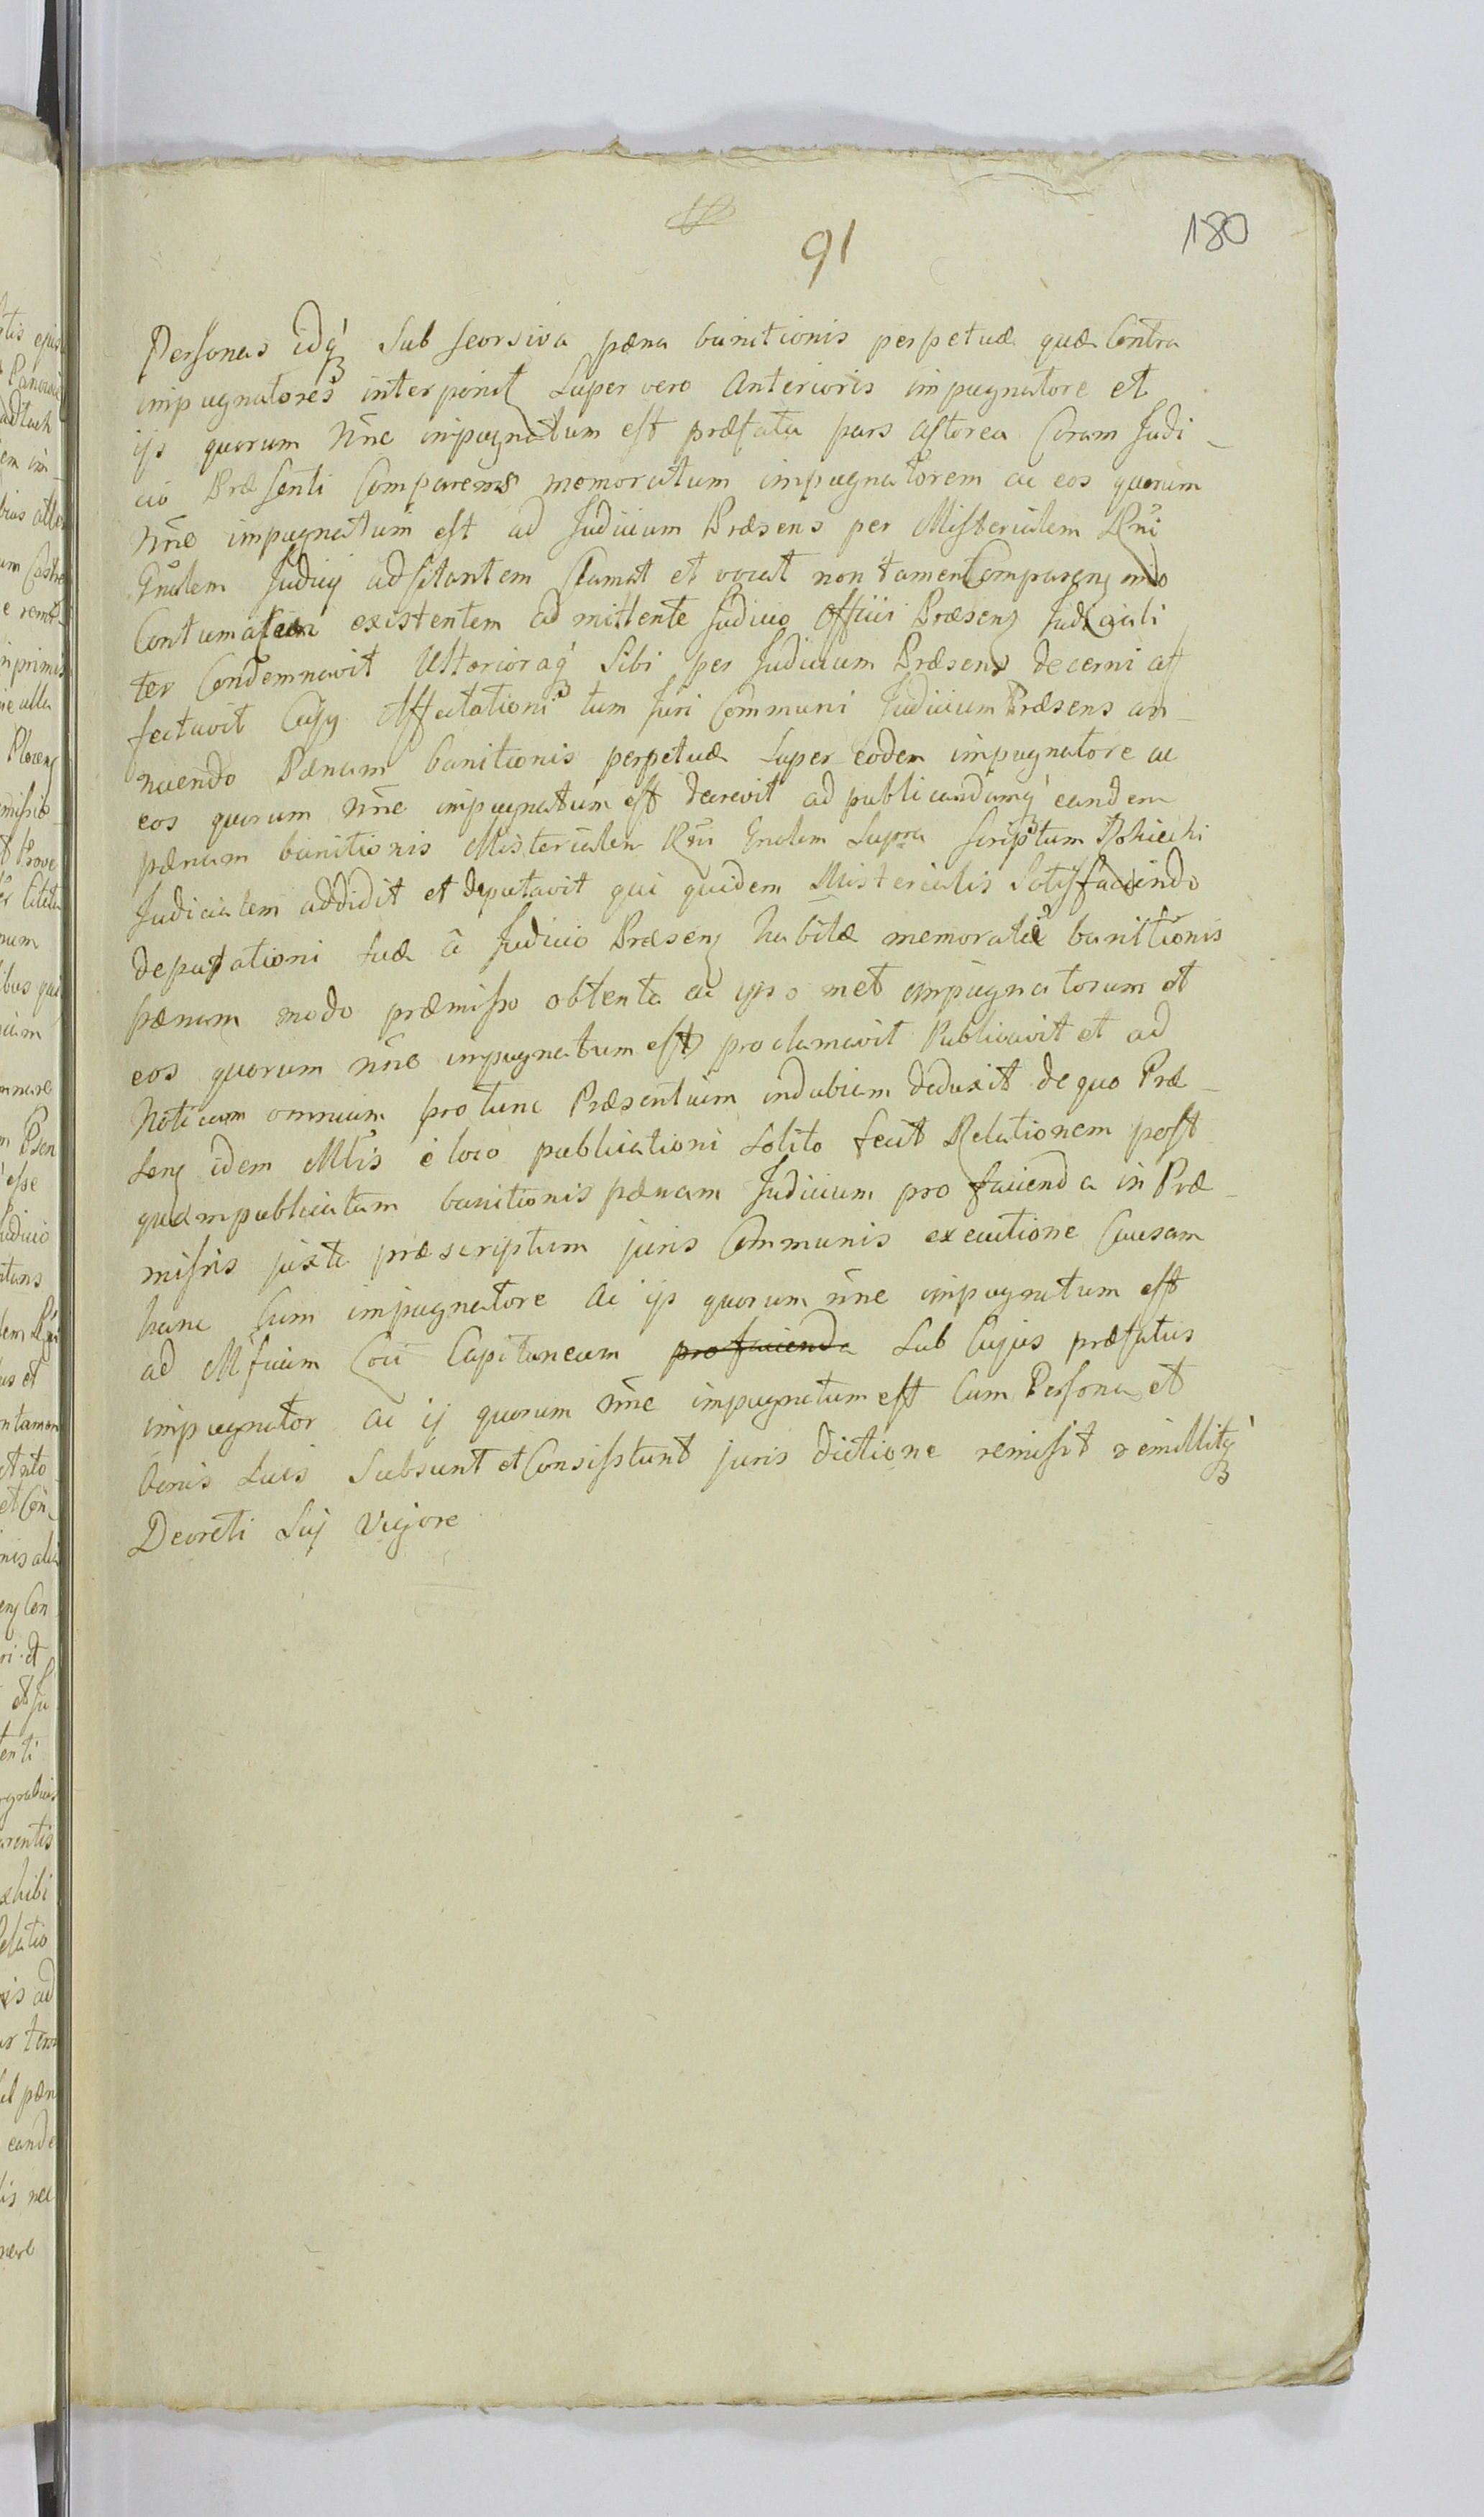 91
180
Personas idq́ Sub seorsiva pæna banitionis perpetuæ quæ Contra
impugnatores interponit Super vero Anterioris impugnatore et
ijs quorum nñe impugnatum est præfata pars actorea Coram Judi-
cio Præsenti Comparens memoratum impugnatorem ac eos quorum
nñe impugnatum est ad Judicium Præsens per Misterialem Rñi
Gñalem Judicij adsitantem Clamat et vocat non tamen Comparen
Contumacem existentem admittente Judicio Officii Præsens Judiciali
ter Condemnavit Ulterioraq́ Sibi per Judicium Præsens decerni af
fectavit Cujq Affectationi tum Juri Communi Judicium Præsens an-
nuendo Pænam banitionis perpetuæ Super eodem impugnatore ac
eos quorum nñe impugnatum est decrevit ad publicandamq́ eandem
pænam banitionis Misterialem Rñi Gnalem Supra scriptum
Judicialem addidit et deputavit qui quidem Misterialis Satisfaciendo
deputationi suæ â Judicio Præsen habitæ memoratæ banitionis
pænam modo præmisso obtenta ac ipso met impugnatorum et
eos quorum nñe impugnatum est proclamavit Publicavit et ad
Noticiam omnium pro tunc Præsentium indubiam deduxit de quo Præ-
sens idem Mtlis è loco publicationi Solito fecit Relationem post
quampublicatam banitionis pænam Judicium pro facienda in Præ-
missis juxta præscriptum juris Communis executione Causam
hanc Cum impugnatore Ac ijs quorum nñe impugnatum est
ad Mficum Loci Capitaneum pro facienda Sub Cujus præfatus
impugnator ac ij quorum nñe impugnatum est Cum Persona et
bonis Suis Subsunt et Consistunt juris dictione remisit remittitq́
Decreti Sui Vigore